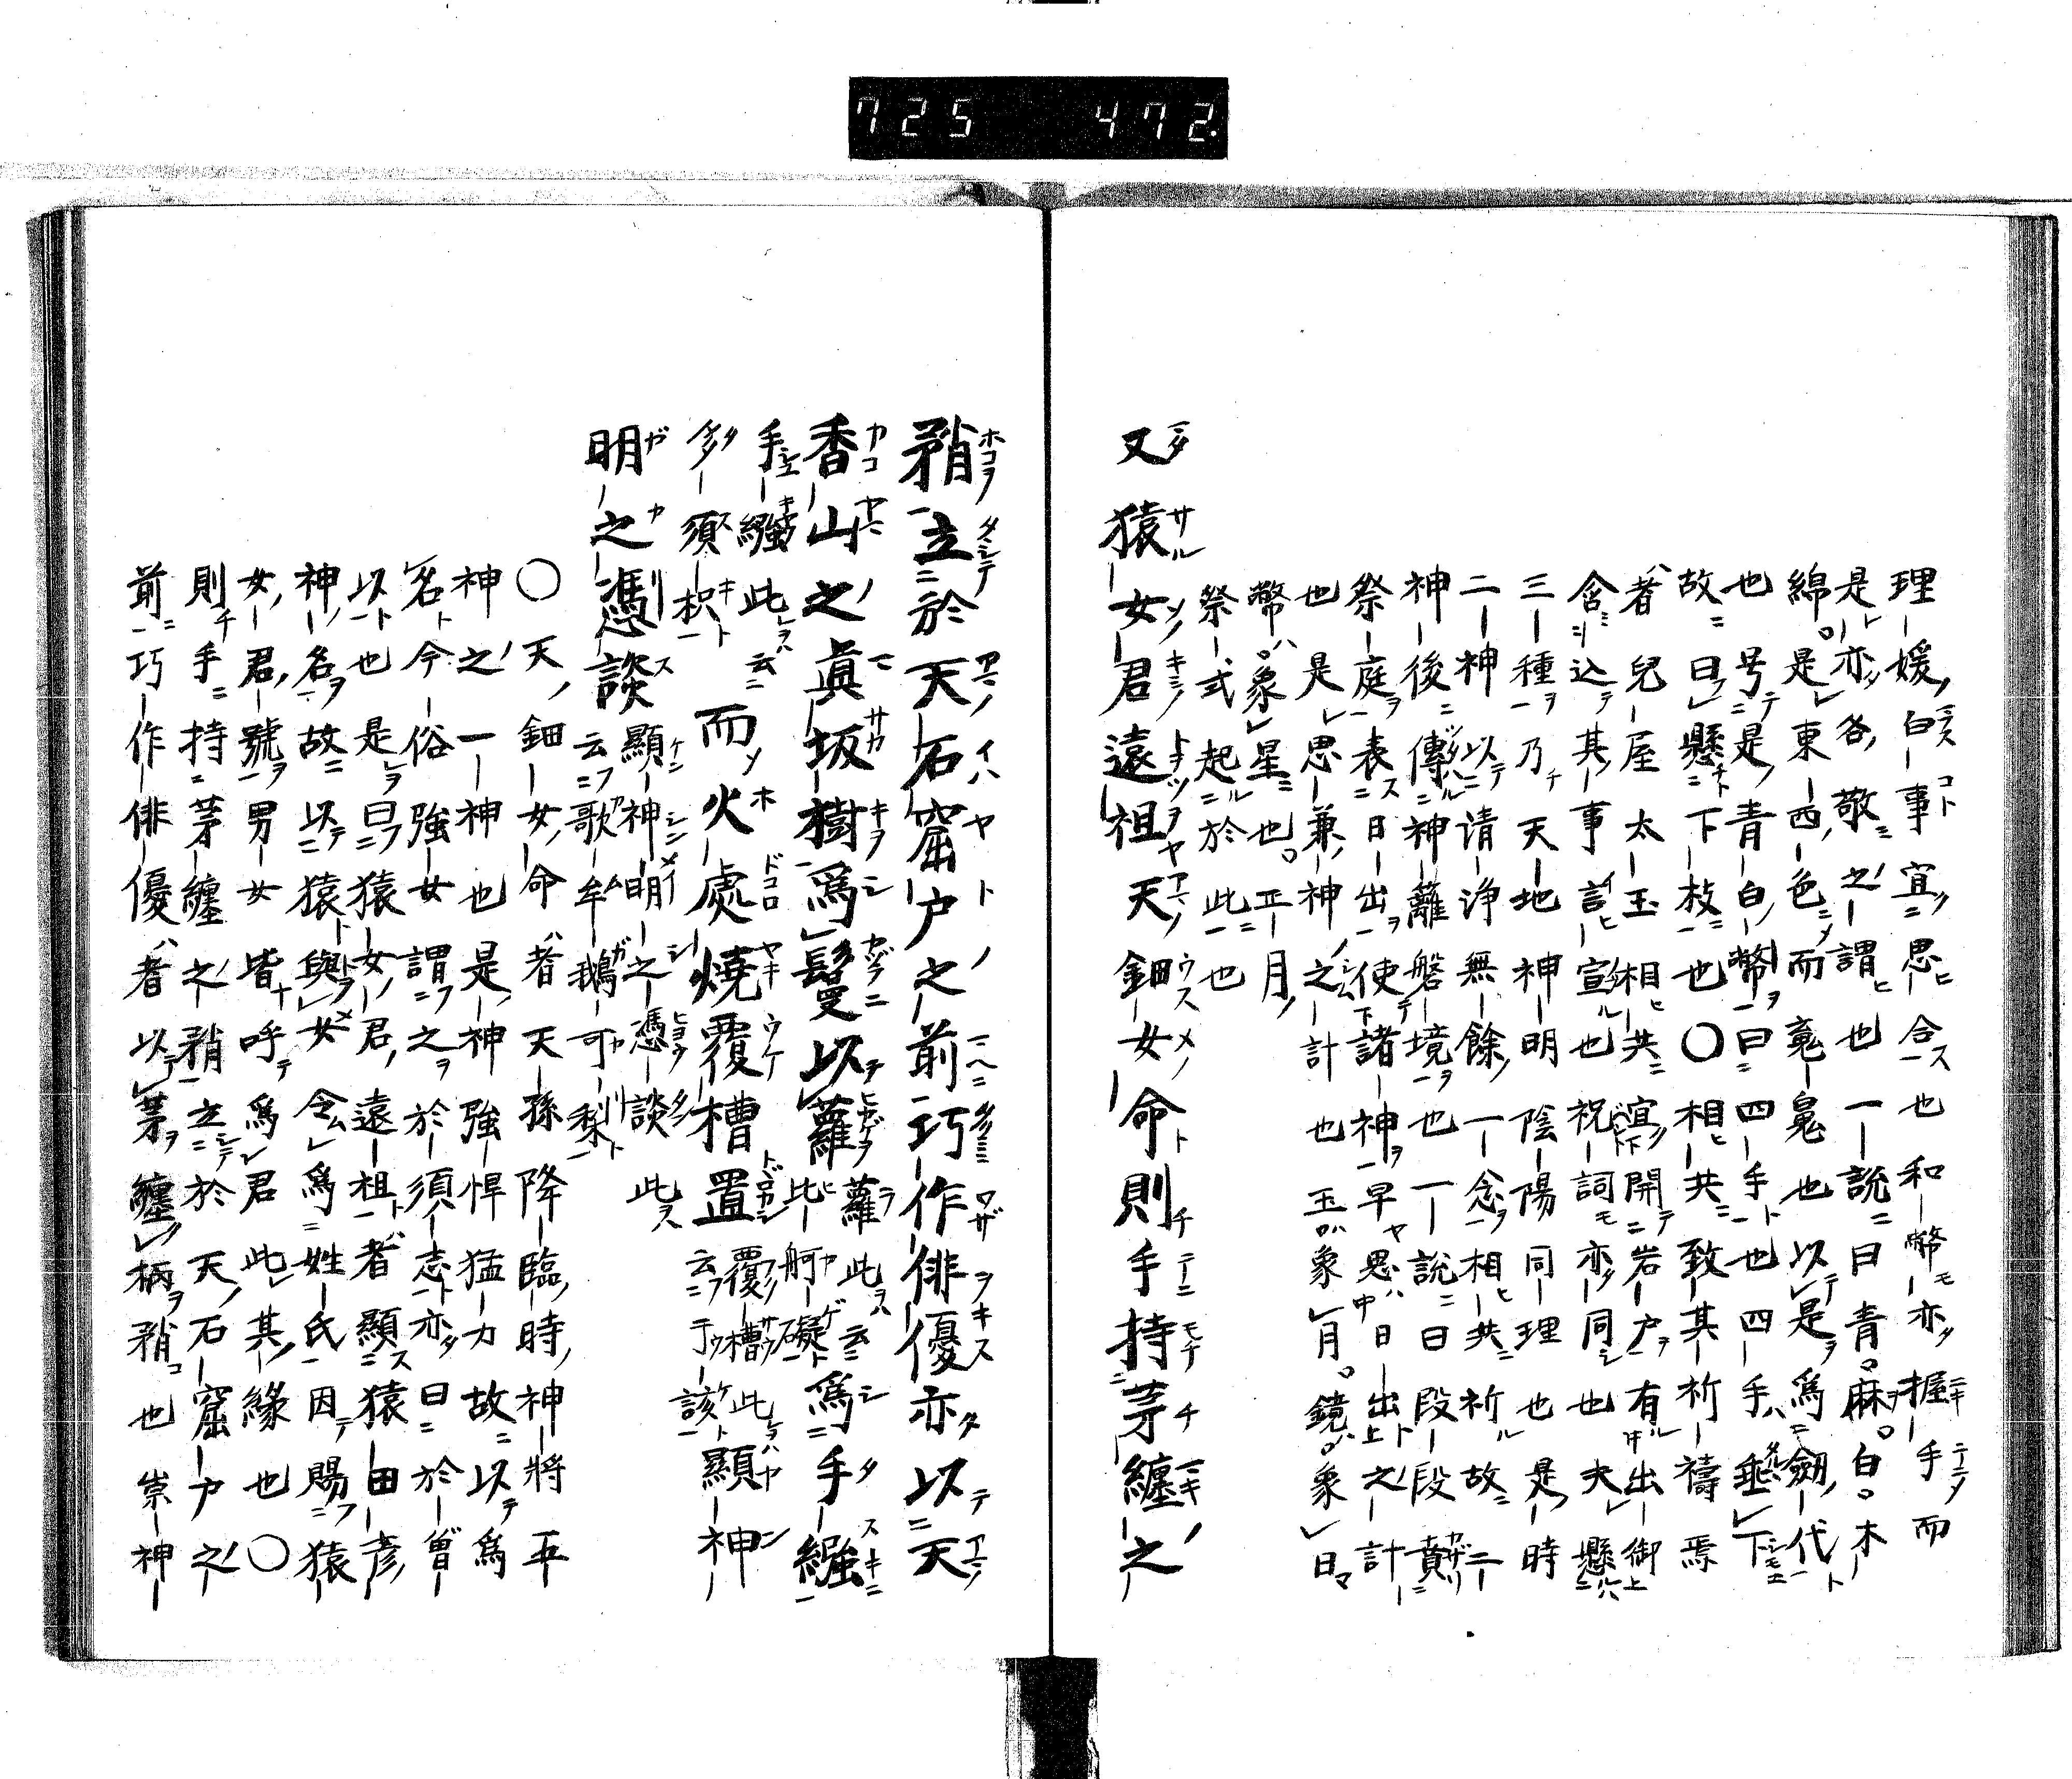 725 472.
理媛白事宜思合也和幣亦握手而
是亦各敬之謂也一説曰青麻白木
綿是東西色而竟鬼也以是為劔代
也号是青白幣曰四手也四手垂下
故曰懸下枝也〇相共致其祈禱焉
者兒屋太玉相共宜開岩戸有出御
含込其事言宣也祝詞亦同也夫懸
三種乃天地神明陰陽同理也是時
二神以請浄無餘一念相共祈故二
神後傳神籬磐境也一説曰段段賁
祭庭表日出使諸神早思日出之計
也是思兼神之計也玉象月鏡象日
幣象星也正月
祭式起於此也
又猿女君遠祖天鈿女命則手持茅纏之
矟立於天石窟戸之前巧作俳優亦以天
香山之眞坂樹為鬘以蘿蘿此云為手繦
此舸礙
手繦此云
多須枳而火處燒覆槽置覆槽此
云于該顯神
明之憑談顯神明之憑談此
云歌牟鵝可梨
〇天鈿女命者天孫降臨時神將平
神之一神也是神強悍猛力故以為
名今俗強女謂之於須志亦曰於曽
以也是曰猿女君遠祖者顯猿田彦
神名故以猿與女令為姓氏因賜猿
女君號男女皆呼為君此其緣也〇
則手持茅纏之矟立於天石窟戸之
前巧作俳優者以茅纏柄矟也崇神